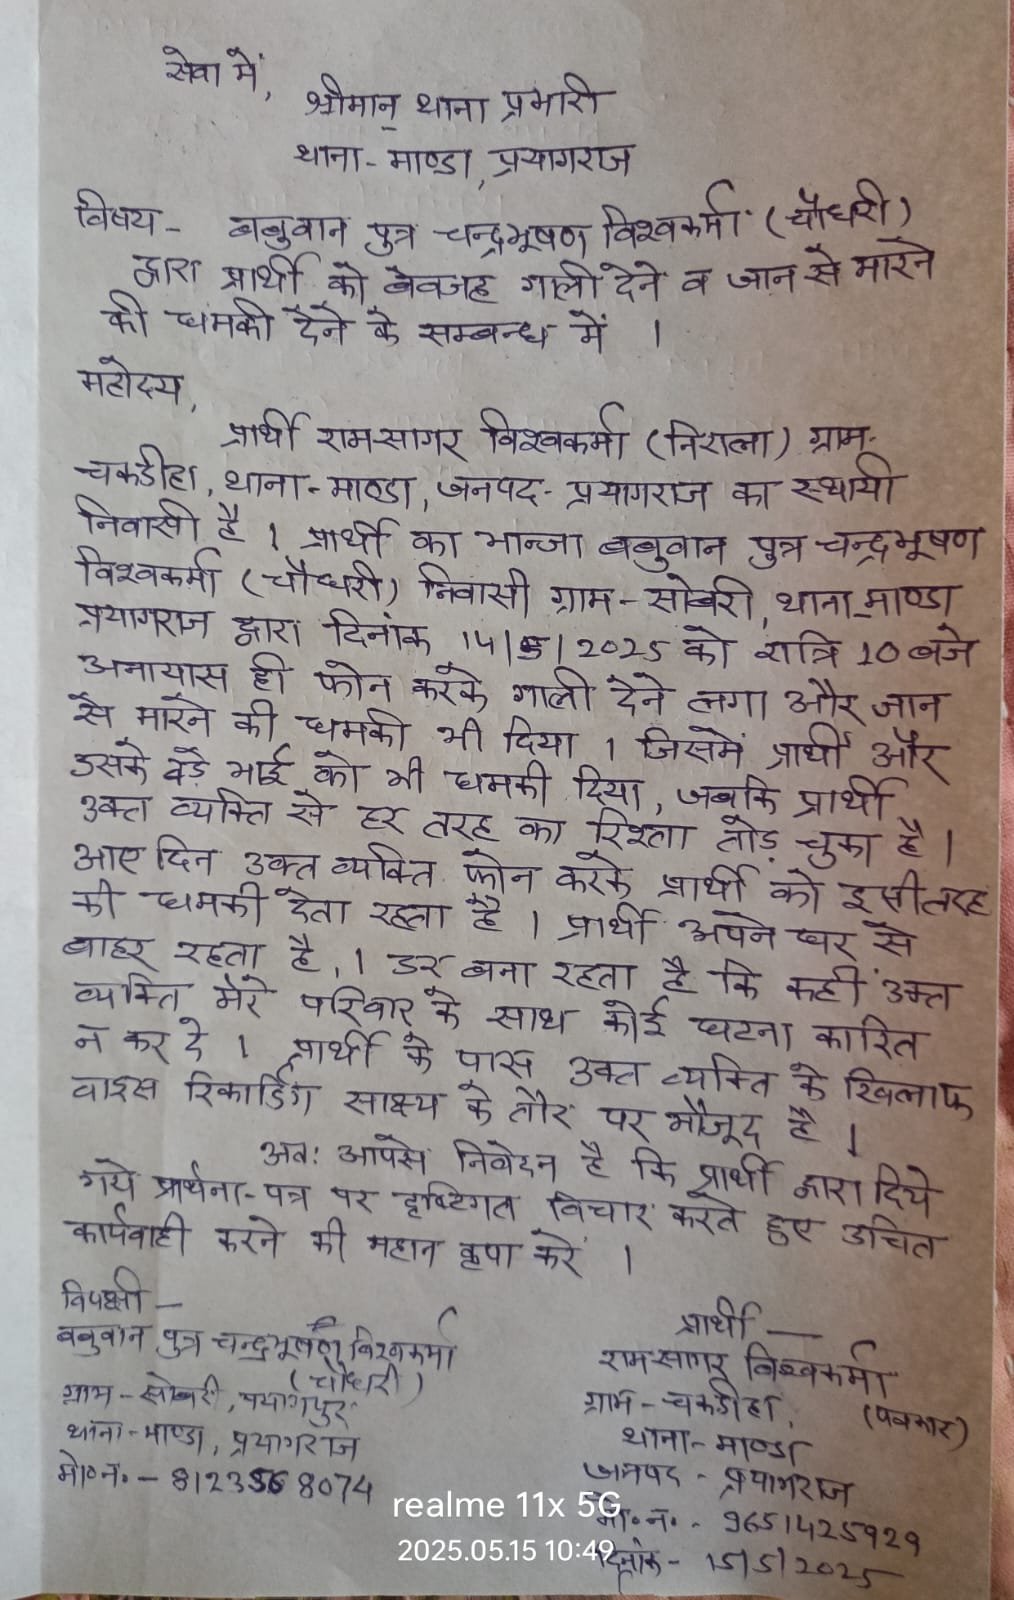 सेवा में,
श्रीमान् थाना प्रभारी
थाना - माण्डा, प्रयागराज
विषय - बबुवान पुत्र चन्द्रभूषण विश्वकर्मा (चौधरी)
द्वारा प्रार्थी को बेवजह गाली देने व जान से मारने
की धमकी देने के सम्बन्ध में ।
महोदय,
प्रार्थी रामसागर विश्वकर्मा (निराला) ग्राम-
चकडीहा, थाना-माण्डा, जनपद-प्रयागराज का स्थायी
निवासी है । प्रार्थी का भान्जा बबुवान पुत्र चन्द्रभूषण
विश्वकर्मा (चौधरी) निवासी ग्राम-सोबरी, थाना-माण्डा
प्रयागराज द्वारा दिनांक 14/5/2025 को रात्रि 10 बजे
अनायास ही फोन करके गाली देने लगा और जान
से मारने की धमकी भी दिया । जिसमें प्रार्थी और
उसके बड़े भाई को भी धमकी दिया, जबकि प्रार्थी
उक्त व्यक्ति से हर तरह का रिश्ता तोड़ चुका है ।
आए दिन उक्त व्यक्ति फोन करके प्रार्थी को इसी तरह
की धमकी देता रहता है । प्रार्थी अपने घर से
बाहर रहता है, । डर बना रहता है कि कहीं उक्त
व्यक्ति मेरे परिवार के साथ कोई घटना कारित
न कर दे । प्रार्थी के पास उक्त व्यक्ति के खिलाफ
वाइस रिकार्डिंग साक्ष्य के तौर पर मौजूद है ।
अतः आपसे निवेदन है कि प्रार्थी द्वारा दिये
गये प्रार्थना-पत्र पर दृष्टिगत विचार करते हुए उचित
कार्यवाही करने की महान कृपा करें ।
विपक्षी —
बबुवान पुत्र चन्द्रभूषण विश्वकर्मा
(चौधरी)
ग्राम - सोबरी,
थाना-माण्डा, प्रयागराज
मो०नं० - 8123568074
प्रार्थी —
रामसागर विश्वकर्मा
(पत्रकार)
ग्राम - चकडीहा,
थाना - माण्डा
जनपद - प्रयागराज
मो०नं० - 9651425929
दिनांक - 15/5/2025
realme 11x 5G
2025.05.15 10:49